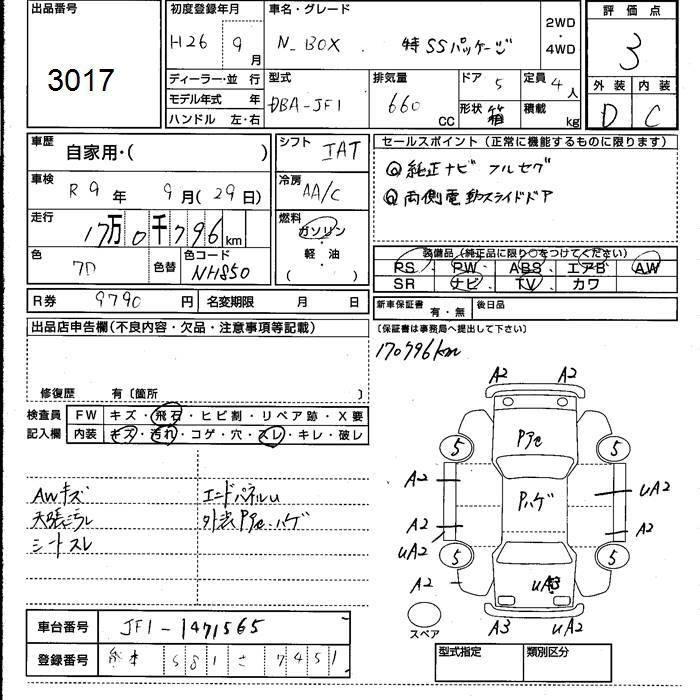 出品番号
3017
初度登録年月
H26 9月
車名・グレード
N-BOX 特 SSパッケージ
2WD
・
4WD
評価点
3
外装 内装
D C
ディーラー・並行
モデル年式 年
ハンドル 左・右
型式
DBA-JF1
排気量
660 cc
ドア 5
形状 箱
定員 4人
積載 kg
車歴
自家用・( )
シフト
IAT
セールスポイント(正常に機能するものに限ります)
◎純正ナビ フルセグ
◎両側電動スライドドア
車検
R9年 9月(29日)
冷房
AA/C
走行
17万0千796km
燃料
ガソリン
・
軽・油
( )
色
7D
色替
色コード
NH850
装備品(純正品に限り○をつけてください)
PS PW ABS エアB AW
SR ナビ TV カワ
R券 9790円
名変期限 月 日
新車保証書 有・無
後日品
(保証書は事務局へ提出して下さい)
出品店申告欄(不良内容・欠品・注意事項等記載)
170796km
修復歴 有〔箇所 〕
検査員
記入欄
FW キズ・飛石・ヒビ割・リペア跡・X要
内装 キズ・汚れ・コゲ・穴・スレ・キレ・破レ
AWキズ
天張ニラレ
シートスレ
エンドパネルU
外装Pアセ・ハゲ
A2 A2
5 Pアセ 5
A2 Pハゲ UA2
A2 A2
UA2
5 5
A2 UA3
A3 UA2
スペア
車台番号 JF1-1471565
登録番号 熊本 581 さ 7451
型式指定 類別区分